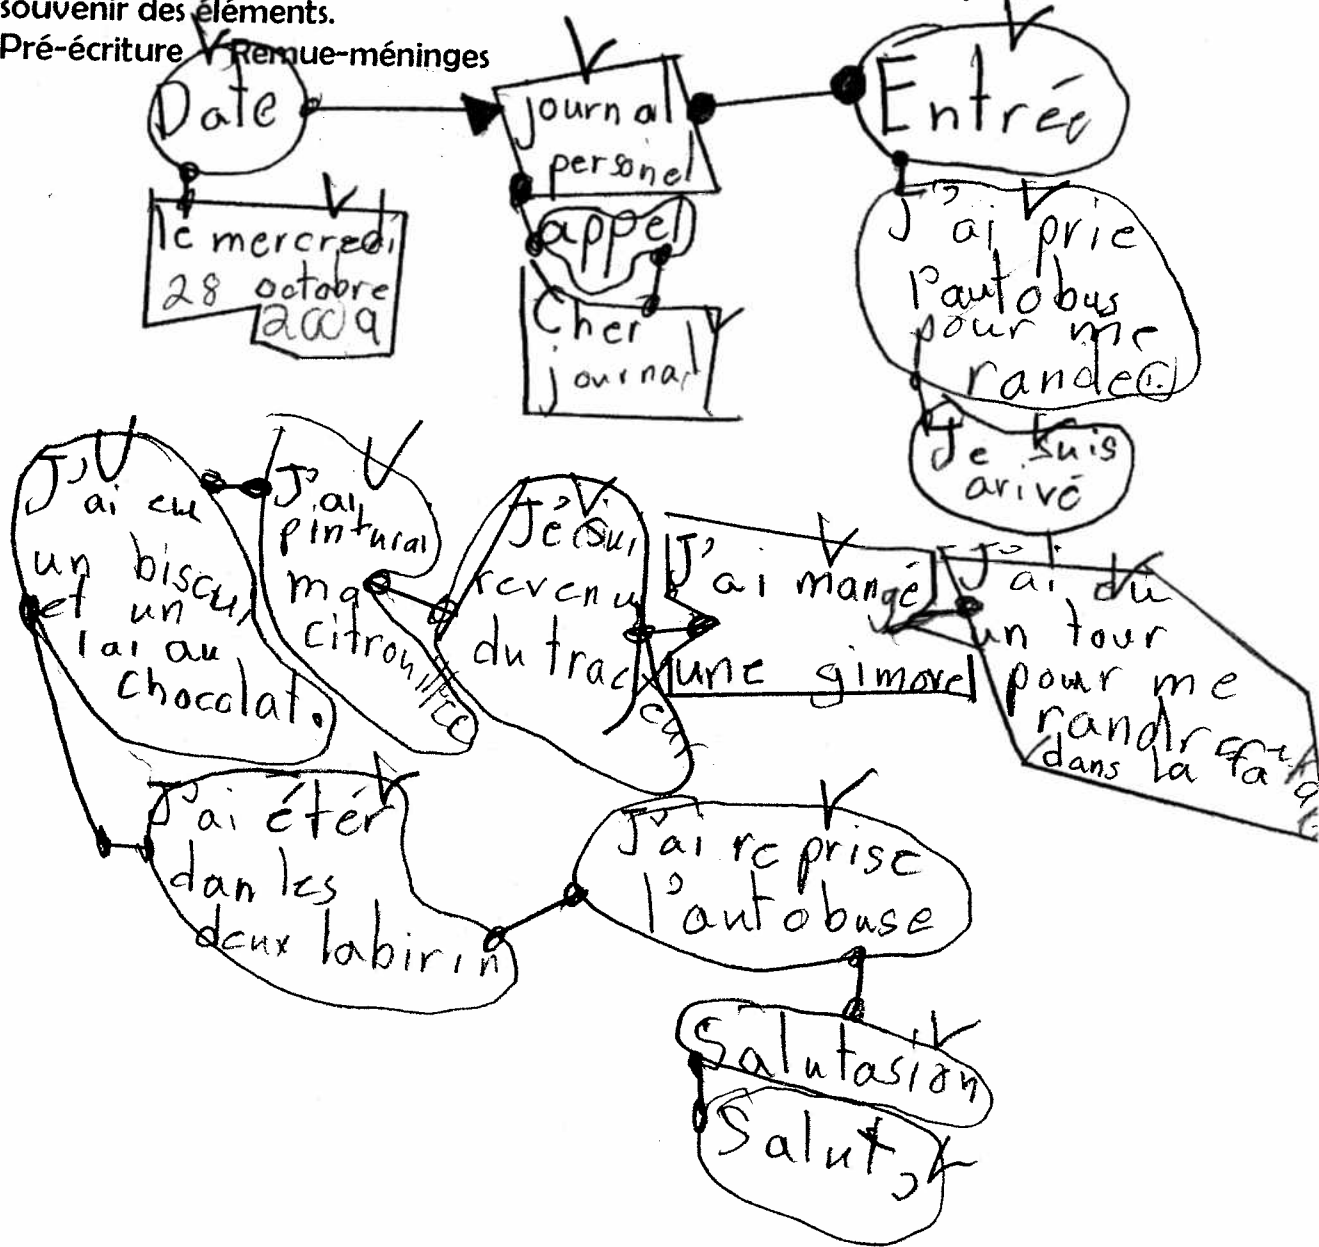 souvenir des éléments.
Pré-écriture Remue-méninges
Date
le mercredi
28 octobre
2009
journal
personel
appel
Cher
journal
Entrée
J'ai prie
l'autobus
pour me
rande
Je suis
arivé
J'ai du
un tour
pour me
randre
dans la
J'ai mangé
une gimove
Je sui
revenu
du tracteur
J'ai
pinturai
ma
citrouille
J'ai eu
un biscui
et un
lai au
chocolat.
J'ai étér
dan les
deux labirin
J'ai reprise
l'autobuse
Salutasion
Salut,